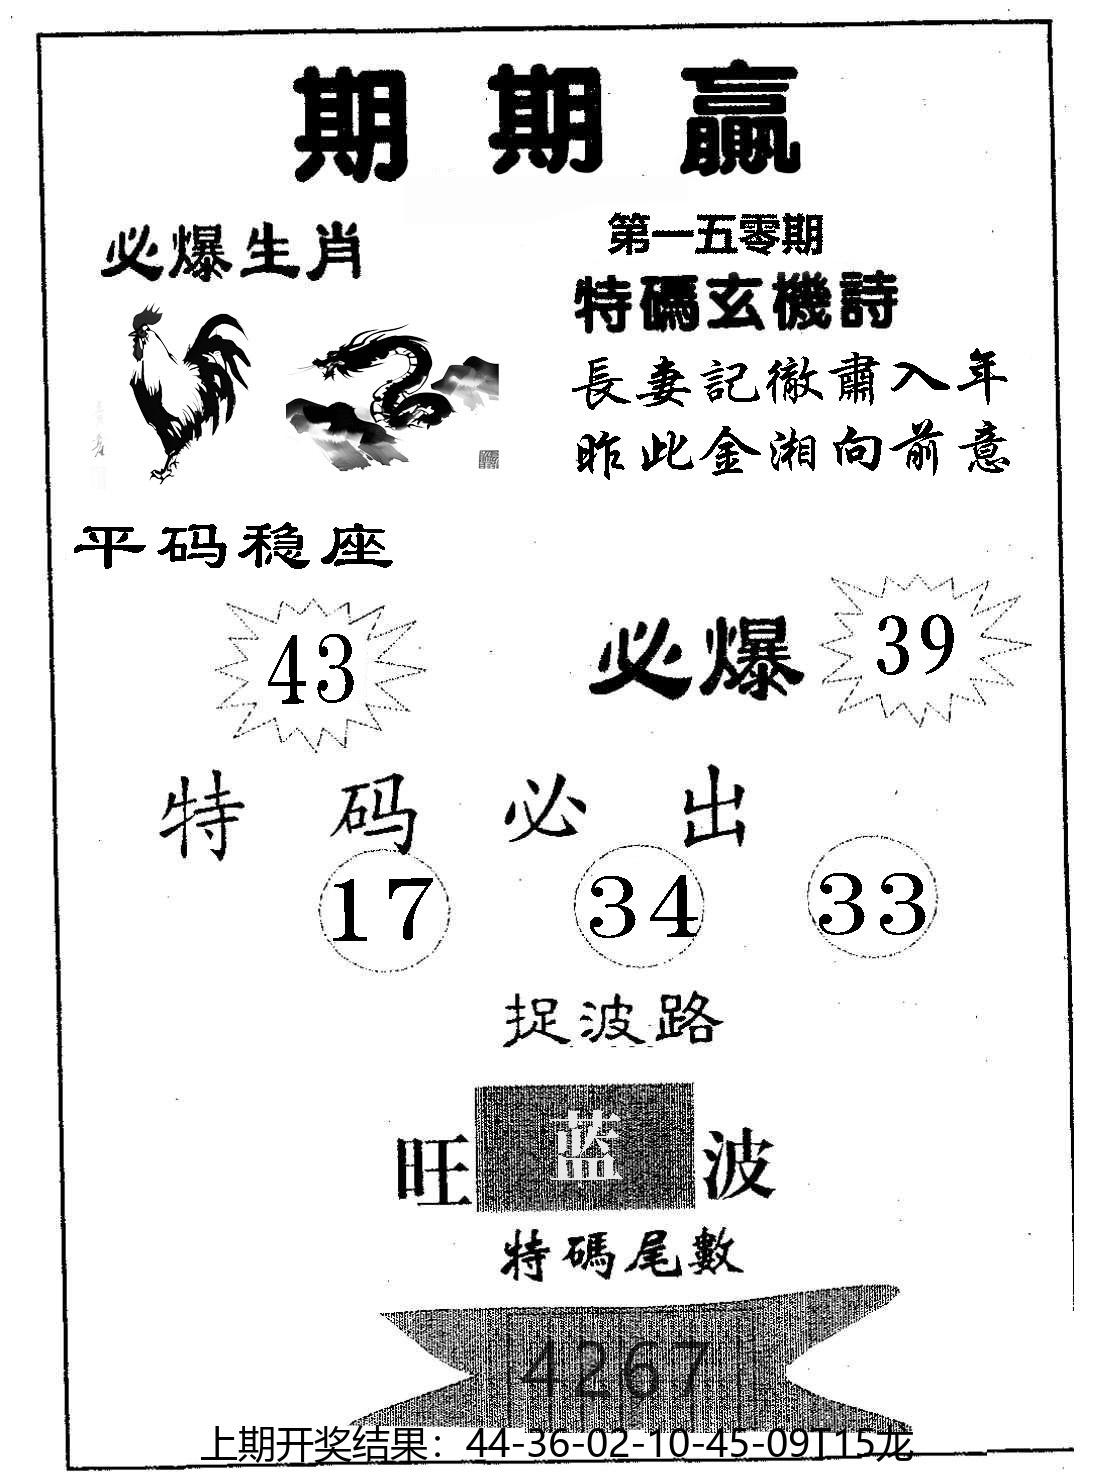 期期贏
必爆生肖
第一五零期
特碼玄機詩
長妻記徹肅入年
昨此金湘向前意
平码稳座
43
必爆 39
特码必出
17 34 33
捉波路
旺 蓝 波
特碼尾數
4267
上期开奖结果：44-36-02-10-45-09T15龙